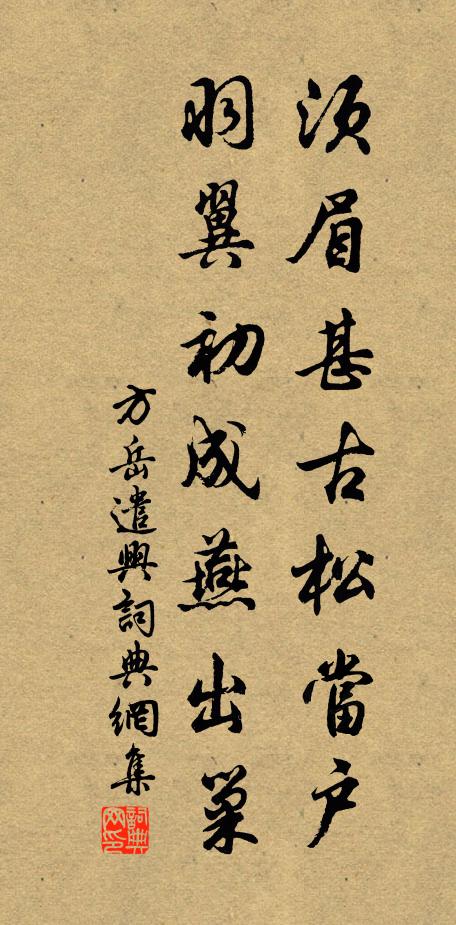 須眉甚古松當戶
羽翼初成燕出巢
方岳遣興詞典網集
詞典網印